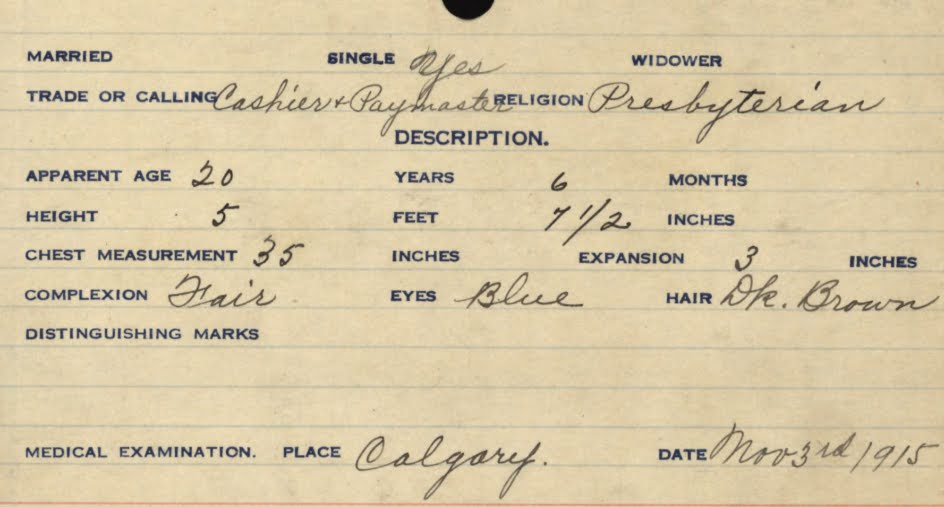 MARRIED SINGLE Yes WIDOWER
TRADE OR CALLING Cashier + Paymaster RELIGION Presbyterian
DESCRIPTION.
APPARENT AGE 20 YEARS 6 MONTHS
HEIGHT 5 FEET 7 1/2 INCHES
CHEST MEASUREMENT 35 INCHES EXPANSION 3 INCHES
COMPLEXION Fair EYES Blue HAIR Dk. Brown
DISTINGUISHING MARKS
MEDICAL EXAMINATION. PLACE Calgary. DATE Nov 3rd / 1915